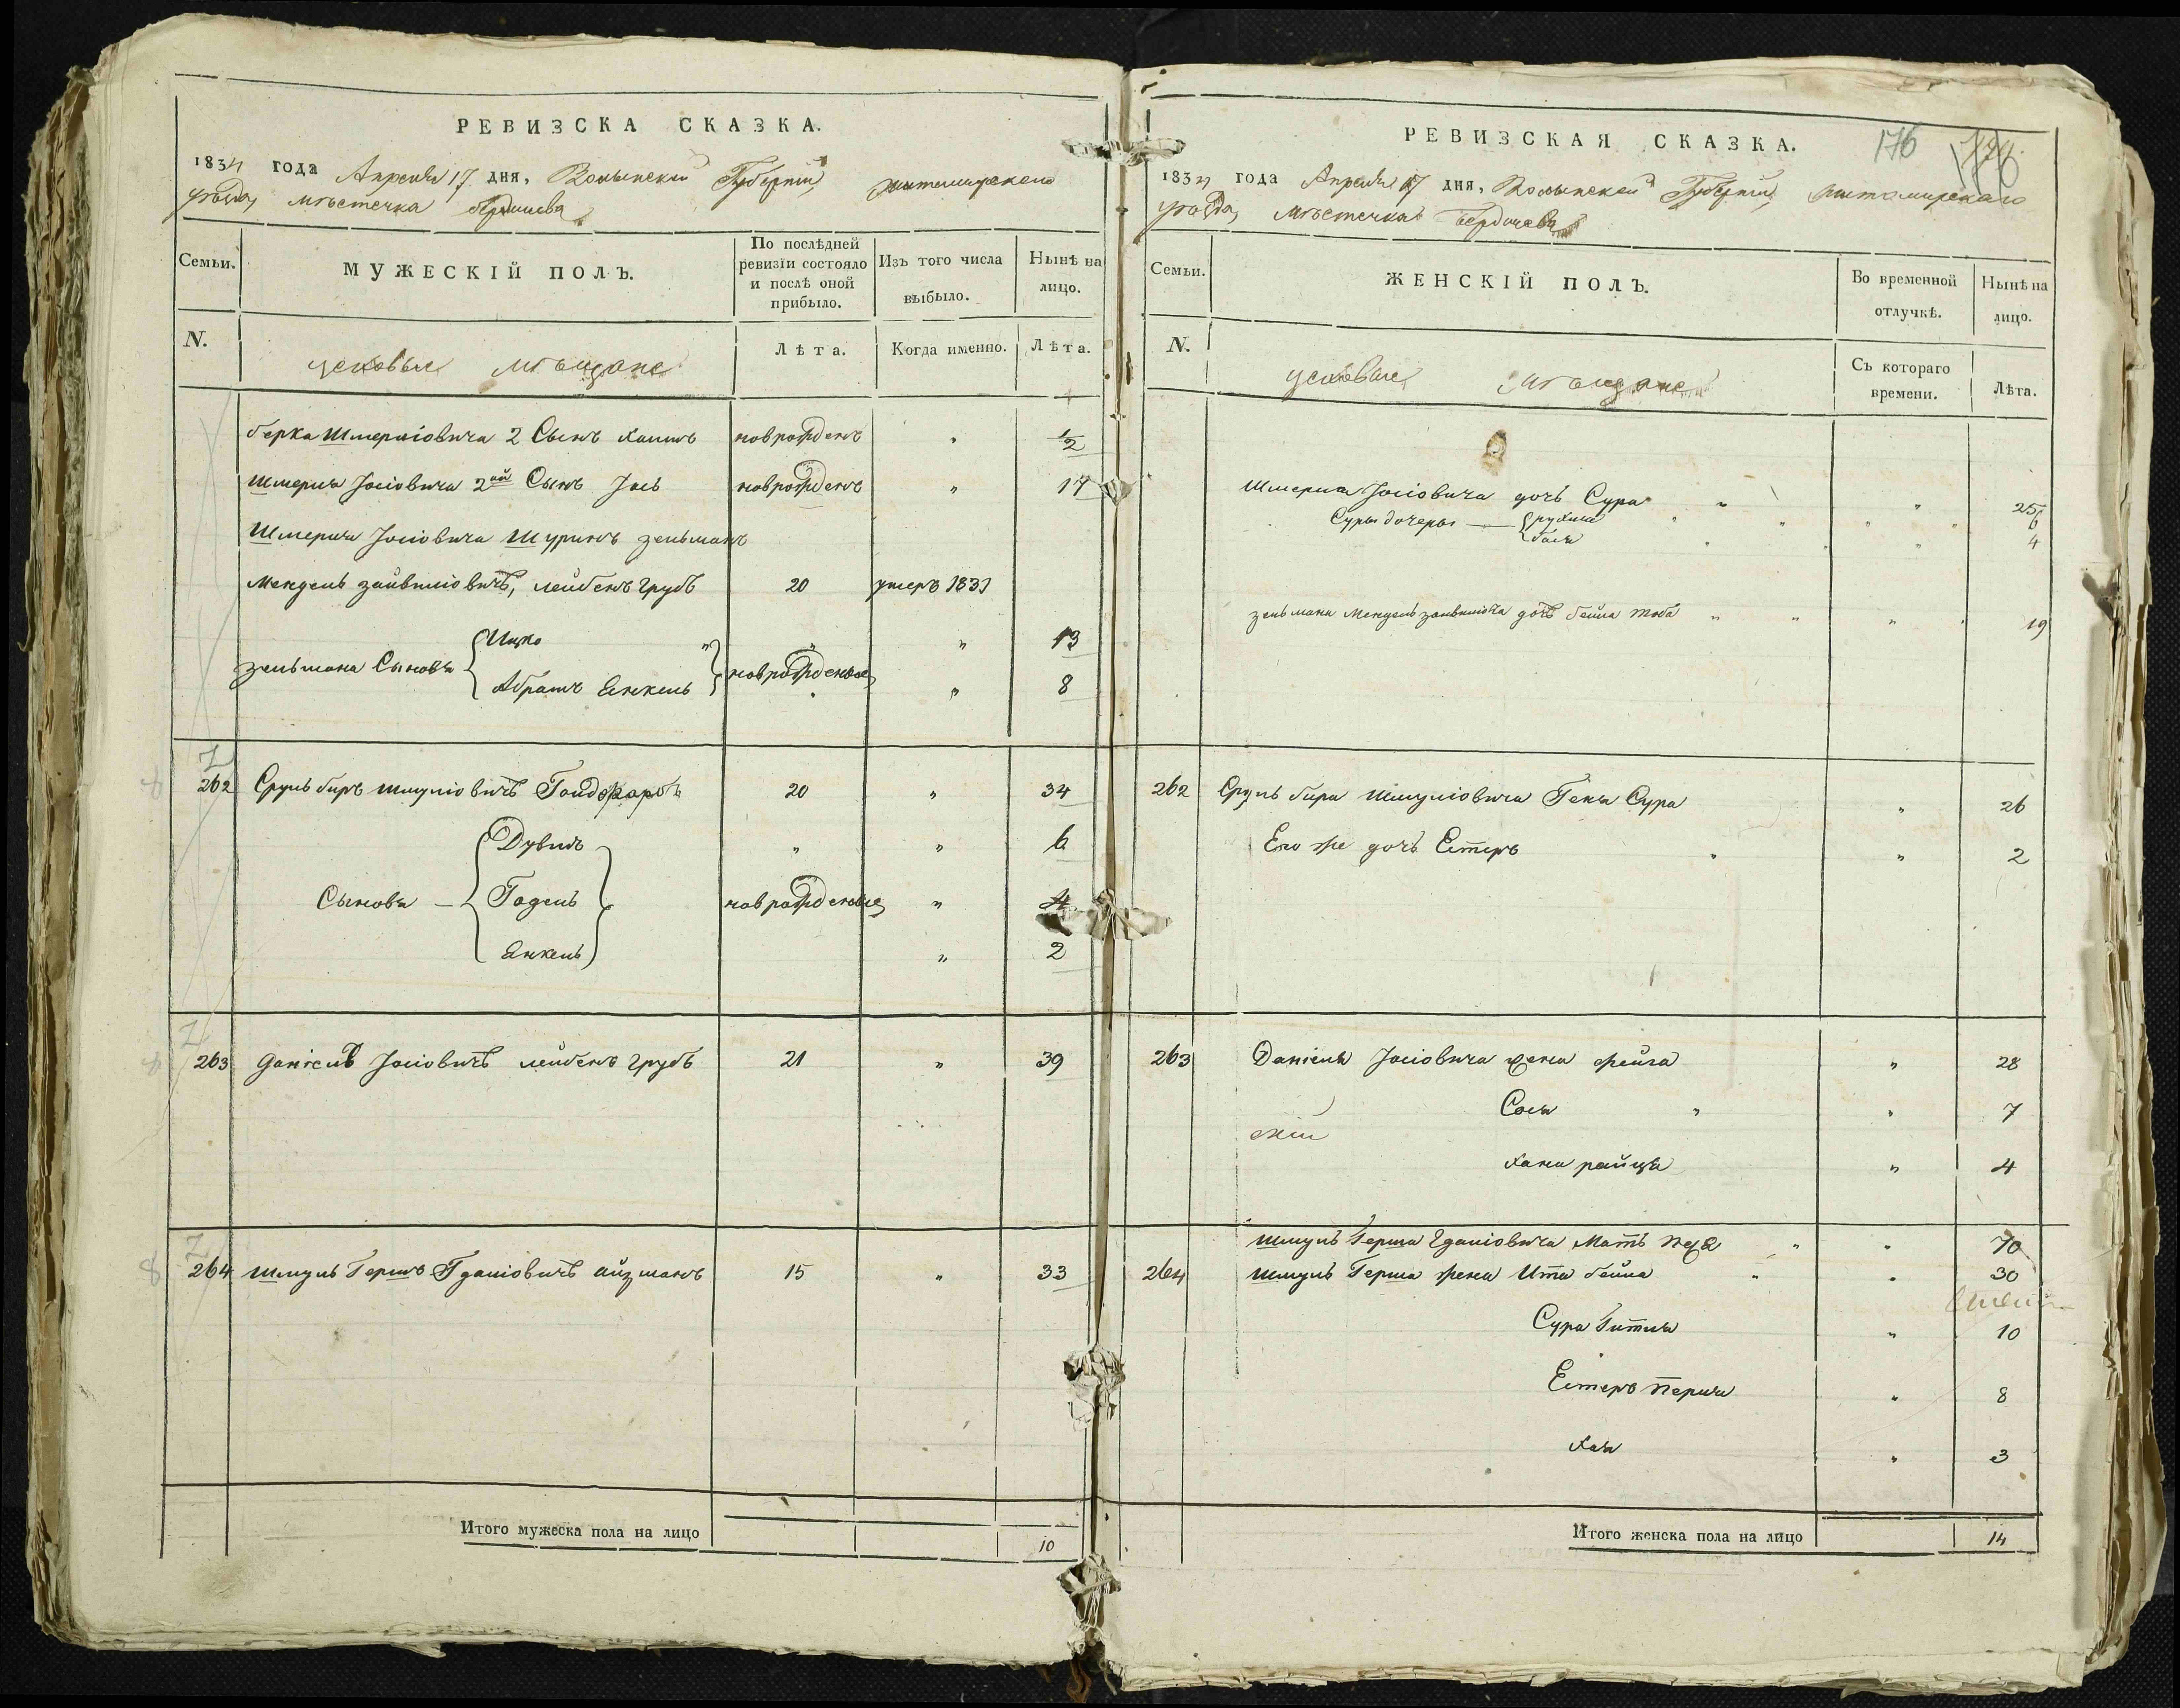 РЕВИЗСКА СКАЗКА.
1834 года Апреля 17 дня, Волынской Губерніи Житомирскаго
уѣзда, мѣстечка бердичева
Семьи.
МУЖЕСКІЙ ПОЛЪ.
По послѣдней ревизіи состояло и послѣ оной прибыло.
Изъ того числа выбыло.
Нынѣ на лицо.
N.
мѣщане
Лѣта.
Когда именно.
Лѣта.
берка Шмеріовича 2 Сынъ хаимъ новрожденъ " 1/2
Шмерка Іосіовича 2ой Сынъ Іось новрожденъ " 17
Шмерка Іосіовича Шуринъ зельманъ
Мендель зайвиліовичъ, лейбенъ грубъ 20 умеръ 1831
Ицко " " " 13
зельмана Сыновья новрожденые
Абрамъ Янкель " 8
262 Сруль беръ Шмуліовичъ Гольдфарбъ 20 " 34
Дувидъ " " 6
Сыновья — Годель новрожденые " 4
Янкель " 2
263 Даніель Іосіовичъ лейбенъ грубъ 21 " 39
264 Шмуль Гершъ Гдаліовичъ айзманъ 15 " 33
Итого мужеска пола на лицо 10
РЕВИЗСКАЯ СКАЗКА.
176
1834 года Апреля 17 дня, Волынской Губерніи Житомирскаго
уѣзда, мѣстечка бердичева
Семьи.
ЖЕНСКІЙ ПОЛЪ.
Во временной отлучкѣ.
Нынѣ на лицо.
N.
мѣщане
Съ котораго времени.
Лѣта.
Шмерка Іосіовича дочь Сура " " 25
Суры дочеры — рухля " " 6
бася " " 4
зельмана Мендель зайвиліовича дочь бейла тоба " " " 19
262 Сруль бера Шмуліовича Жена Сура " 26
Его же дочь Естеръ " " 2
263 Даніеля Іосіовича жена фейга " 28
Сося " " 7
хана райца " 4
Шмуль Герша Гдаліовича Мать " " 70
264 Шмуль Герша жена Ита бейла " " 30
Сура Гитля " 10
Естеръ перля " 8
хая " 3
Итого женска пола на лицо 14